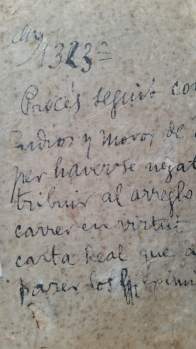 1323=
Procés seguit con
Judios y moros de
per haverse negat
tribuir al arreglo
carrer en virtut
carta Real que
parer los